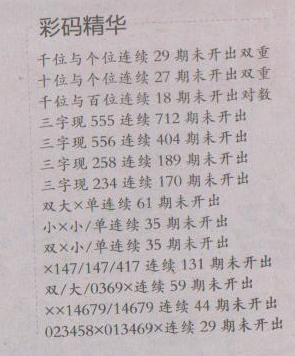 彩码精华
千位与个位连续 29 期未开出双重
十位与个位连续 27 期未开出双重
千位与百位连续 18 期未开出对数
三字现 555 连续 712 期未开出
三字现 556 连续 404 期未开出
三字现 258 连续 189 期未开出
三字现 234 连续 170 期未开出
双大×单连续 61 期未开出
小×小/单连续 35 期未开出
双×小/单连续 35 期未开出
×147/147/417 连续 131 期未开出
双/大/0369×连续 59 期未开出
××14679/14679 连续 44 期未开出
023458×013469×连续 29 期未开出